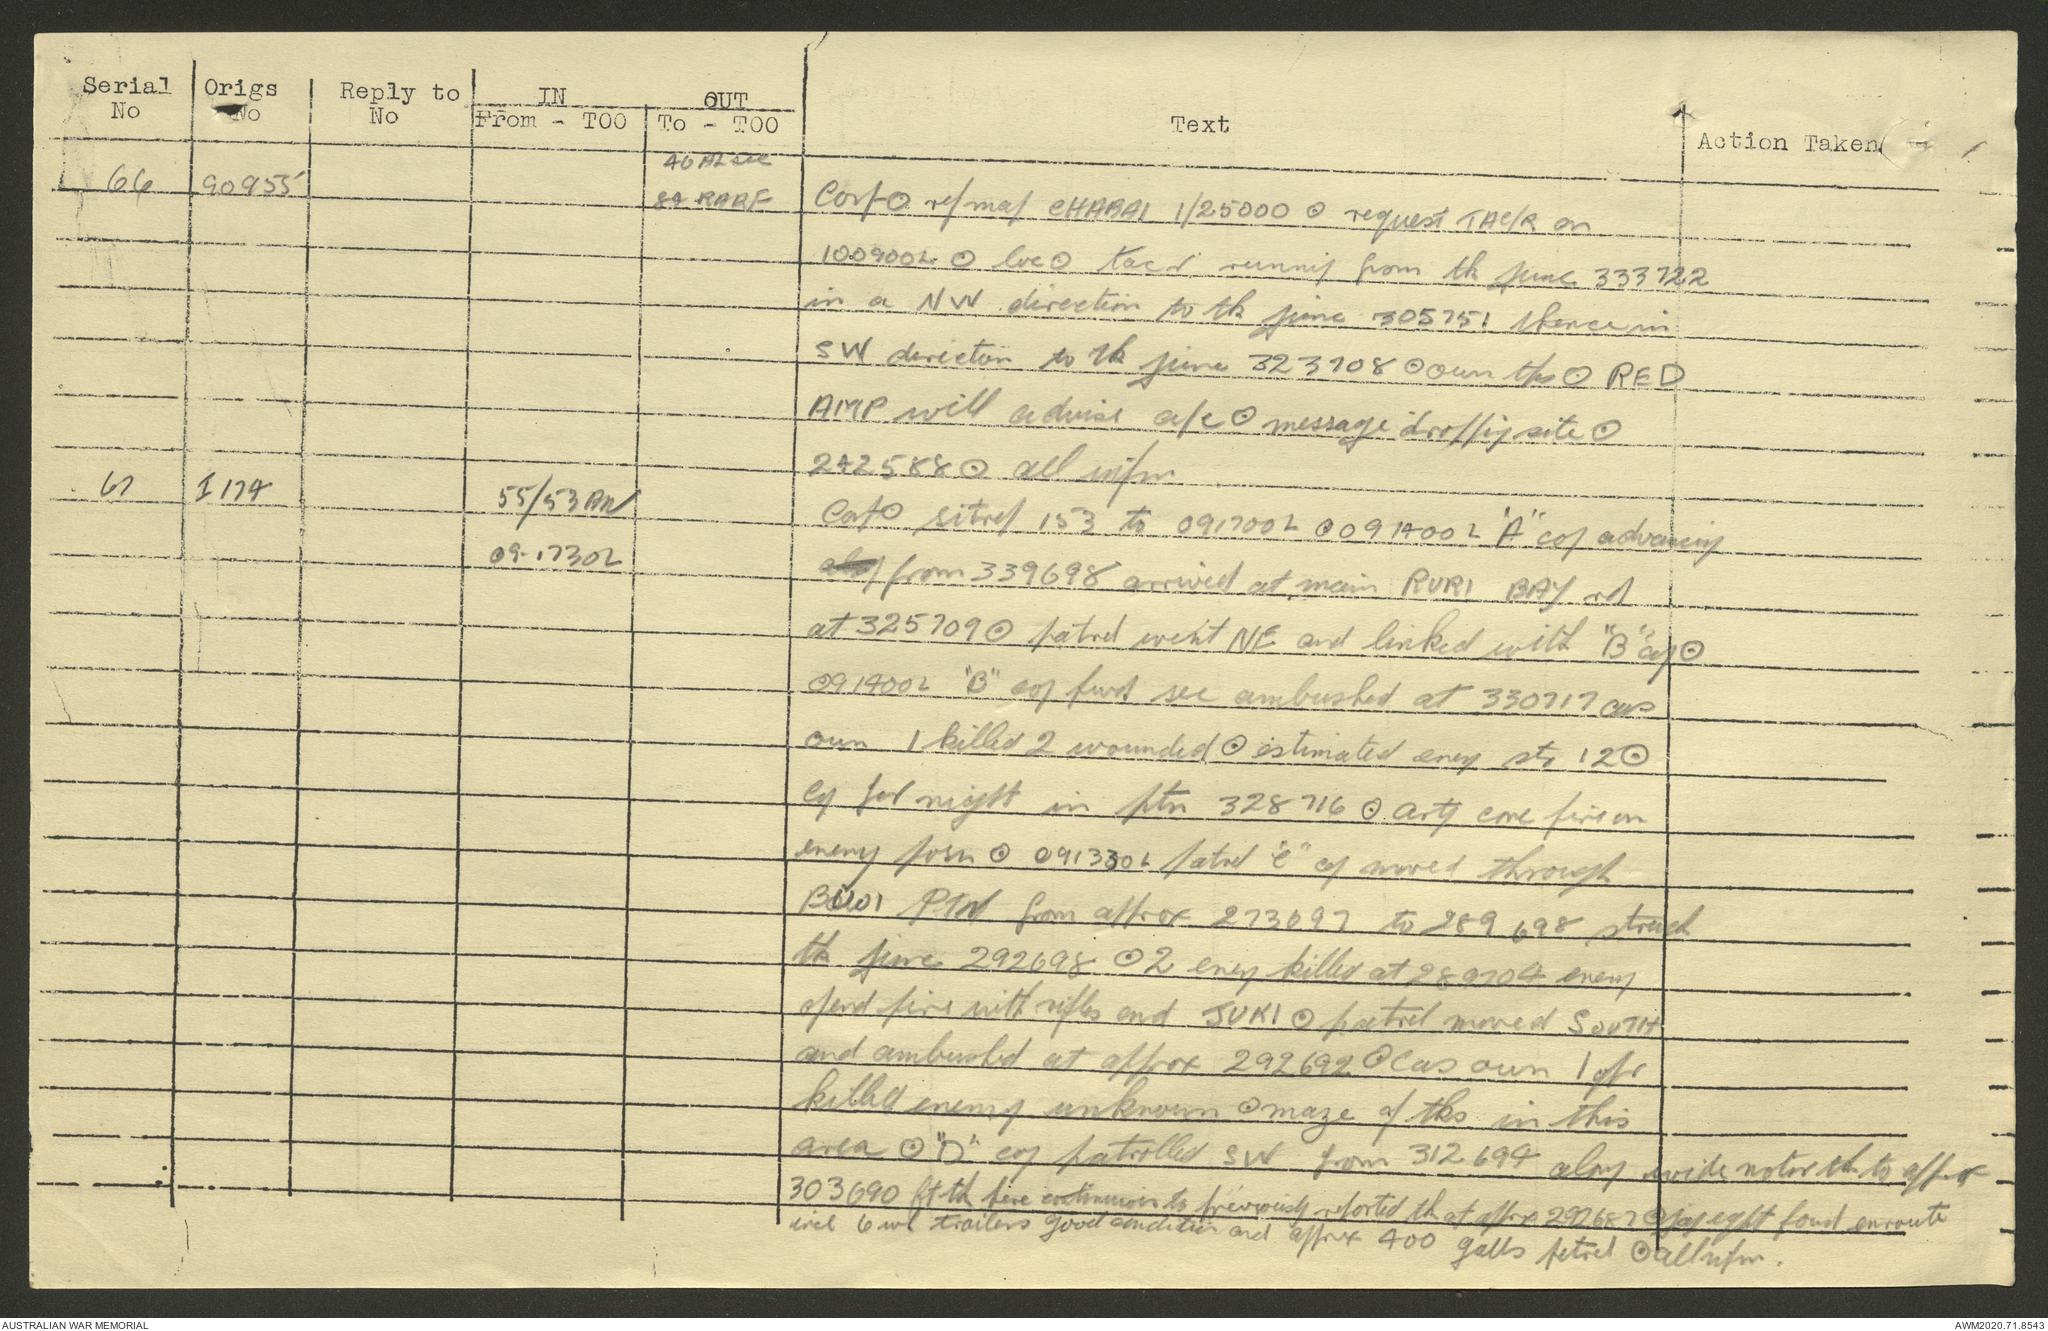 Serial No
Origs No
Reply to No
IN
From - TOO
OUT
To - TOO
Text
Action Taken
66 90955
RAAF
Conf ⊙ ref map CHABAI 1/25000 ⊙ request TAC/R on
100900L ⊙ loc ⊙ from tk junc 333722
in a NW direction to tk junc 305751 thence in
SW direction to tk junc 323708 ⊙ own tps ⊙ RED
AMP will advise a/c ⊙ message dropping site ⊙
242588 ⊙ all infm
67 I 174 55/53
09.1730L
Conf ⊙ sitrep 153 to 091700L ⊙ 091400L "A" coy advancing
from 339698 arrived at main RURI BAY rd
at 325709 ⊙ patrol went NE and linked with "B" coy ⊙
091400L "B" coy fwd sec ambushed at 330717 cas
own 1 killed 2 wounded ⊙ estimated enemy str 12 ⊙
Coy for night in ptn 328716 ⊙ arty conc fire on
enemy posn ⊙ 091330L patrol "C" coy moved through
PTN from approx 273697 to 289698 struck
tk junc 292698 ⊙ 2 enemy killed at 289704 enemy
opend fire with rifles and JUKI ⊙ patrol moved SOUTH
and ambushed at approx 292692 ⊙ Cas own 1 offr
killed enemy unknown ⊙ maze of tks in this
area ⊙ "D" coy patrolled SW from 312694 along wide motor tk to approx
303690 ft tk here to previously reported tk at approx 297687 ⊙ jap eqpt found enroute
incl 6 wl trailers good condition and approx 400 galls petrol ⊙ all infm.
AUSTRALIAN WAR MEMORIAL
AWM2020.71.8543